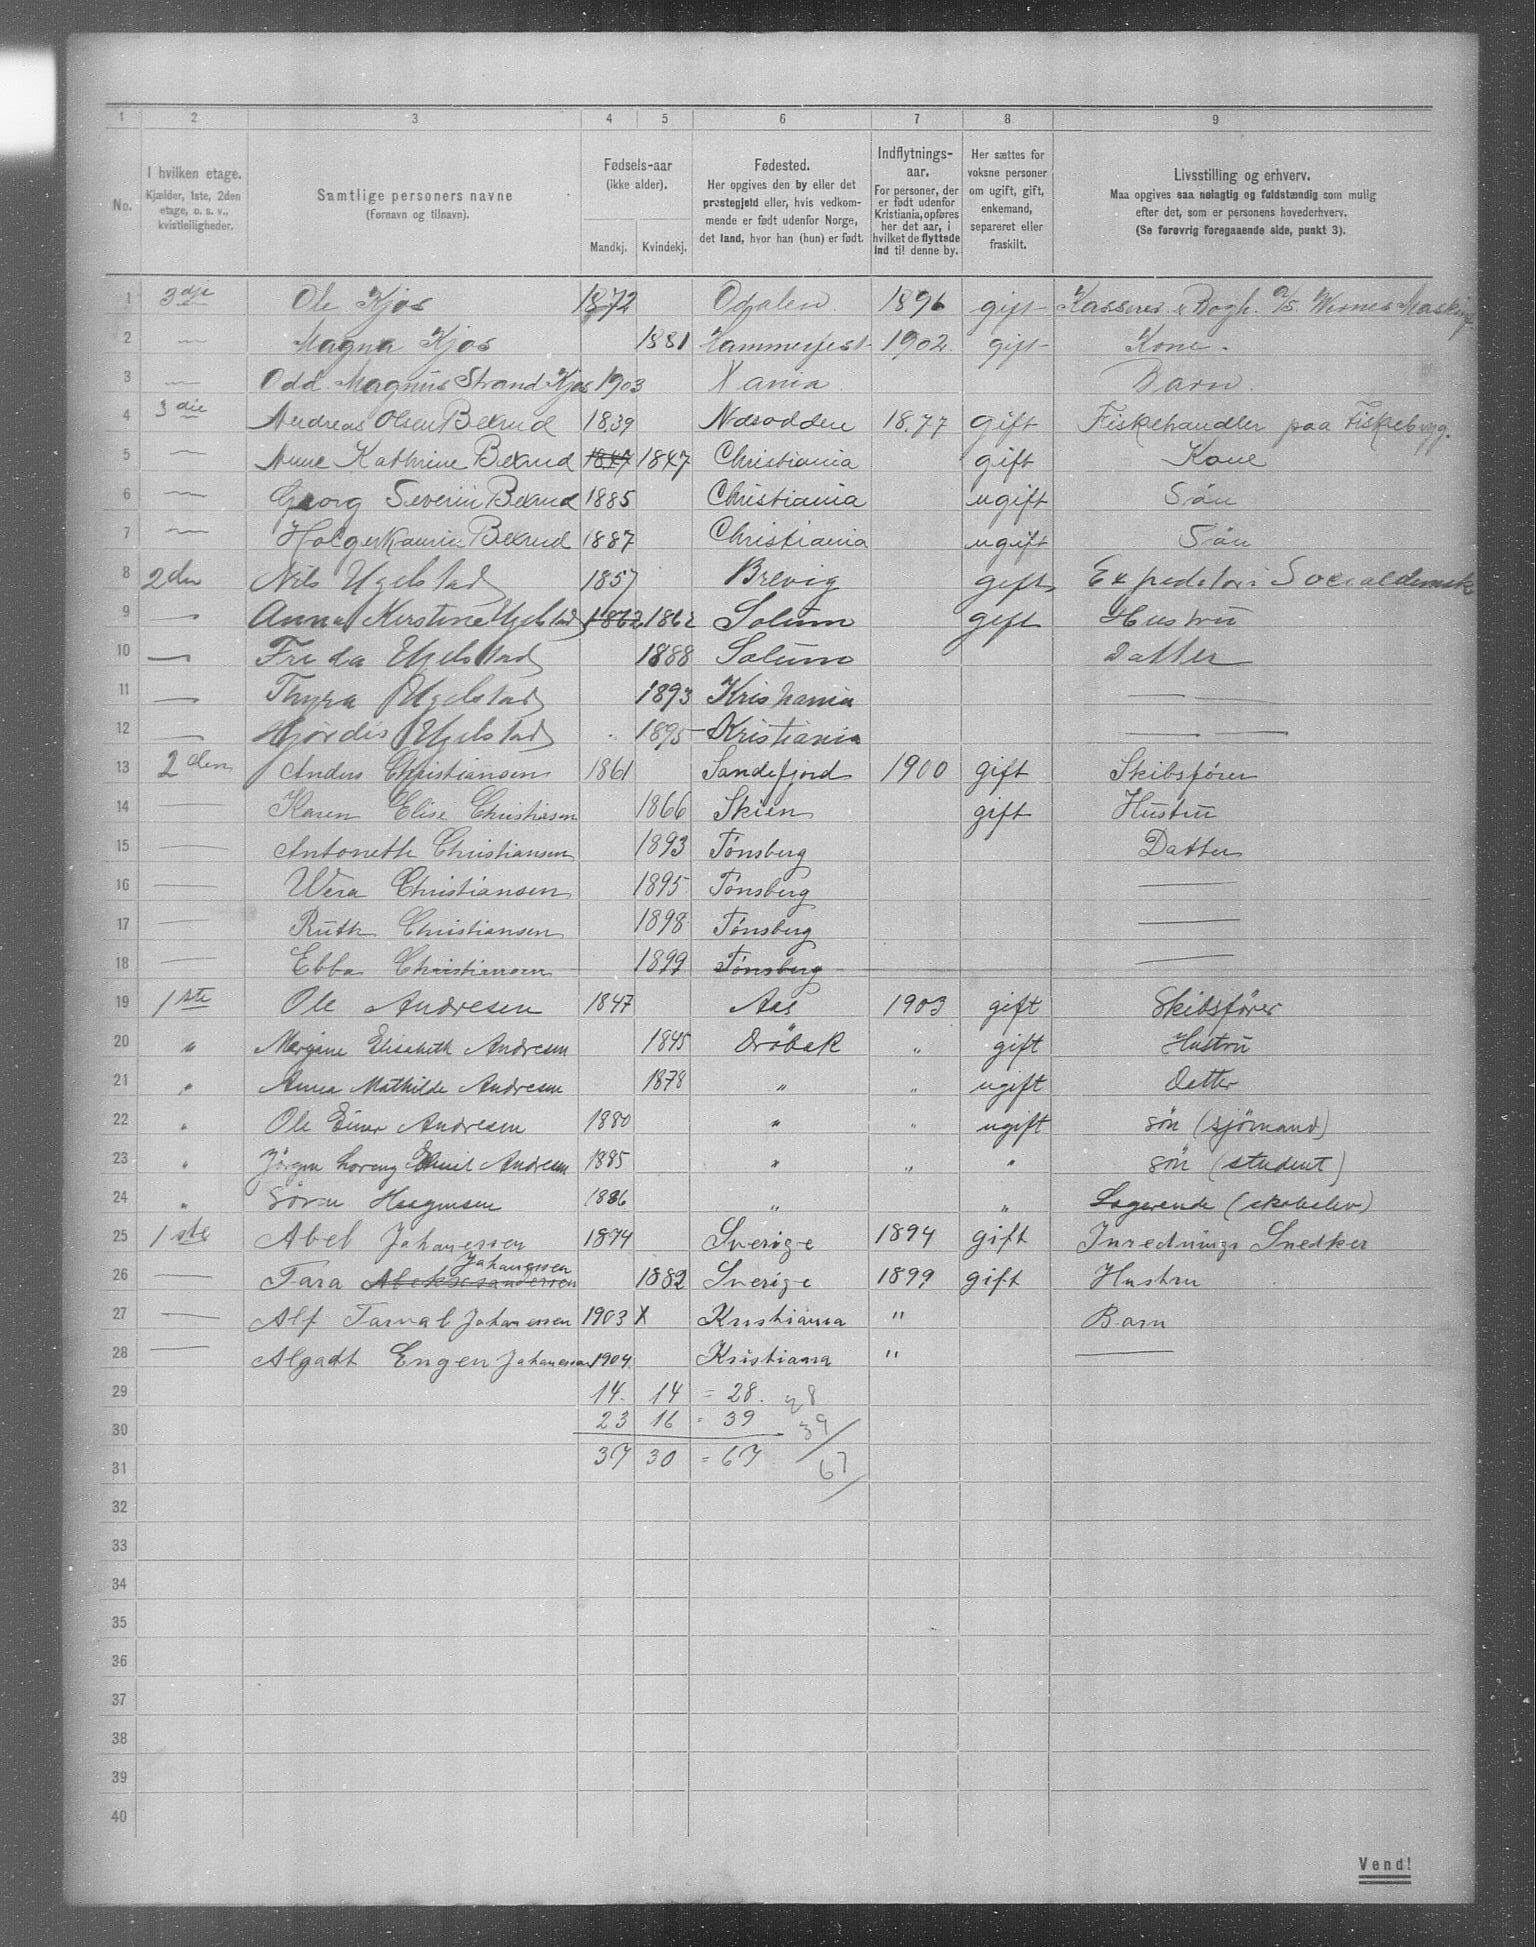 1 2 3 4 5 6 7 8 9
No.
I hvilken etage.
Kjælder, 1ste, 2den
etage, o. s. v.,
kvistleiligheder.
Samtlige personers navne
(Fornavn og tilnavn).
Fødsels-aar
(ikke alder).
Mandkj. Kvindekj.
Fødested.
Her opgives den by eller det
prestegjeld eller, hvis vedkom-
mende er født udenfor Norge,
det land, hvor han (hun) er født.
Indflytnings-
aar.
For personer, der
er født udenfor
Kristiania, opføres
her det aar, i
hvilket de flyttede
ind til denne by.
Her sættes for
voksne personer
om ugift, gift,
enkemand,
separeret eller
fraskilt.
Livsstilling og erhverv.
Maa opgives saa nøiagtig og fuldstændig som mulig
efter det, som er personens hovederhverv.
(Se forøvrig foregaaende side, punkt 3).
1 3dje Ole Kjos 1872 Odalen 1896 gift Kasserer & Bogh. A/S.
2 — Magna Kjos 1881 Hammerfest 1902 gift Kone.
3 — Odd Magnus Strand Kjos 1903 Xania Barn.
4 3die Andreas Olsen Bexrud 1839 Næsodden 1877 gift Fiskehandler paa Fiskebryg.
5 — Anne Kathrine Bexrud 1847 1847 Christiania gift Kone
6 — Georg Severin Bexrud 1885 Christiania ugift Sön
7 — Holger Bexrud 1887 Christiania ugift Sön
8 2den Nils Ugelstad 1857 Brevig gift Expeditør i Socialdemok
9 — Anna Kirstine Ugelstad 1862 1862 Solum gift Hustru
10 — Frida Ugelstad 1888 Solum Datter
11 — Thyra Ugelstad 1893 Kristiania — —
12 — Hjørdis Ugelstad 1895 Kristiania — —
13 2den Anders Christiansen 1861 Sandefjord 1900 gift Skibsfører
14 — Karen Elise Christiansen 1866 Skien gift Hustru
15 — Antoneth Christiansen 1893 Tønsberg Datter
16 — Wera Christiansen 1895 Tønsberg —
17 — Ruth Christiansen 1898 Tønsberg —
18 — Ebba Christiansen 1899 Tønsberg —
19 1ste Ole Andresen 1847 Aas 1903 gift Skibsfører
20 " Mergine Elisabeth Andresen 1845 Dröbak " gift Hustru
21 " Anna Mathilde Andresen 1878 " " ugift Datter
22 " Ole Einar Andresen 1880 " " ugift sön (sjömand)
23 " Jörgen Lorenz Emil Andresen 1885 " " " sön (student)
24 " Sören 1886 " " Logerende (skoelev)
25 1ste Abel Johanessen 1874 Sverige 1894 gift Inrednings Snedker
Johanessen
26 — Tara Aleksandersen 1882 Sverige 1899 gift Hustru
27 — Alf Johanessen 1903 X Kristiania " Barn
28 — Algadt Engen Johanessen 1904 Kristiania " —
29 14. 14 = 28. 28
30 23 16 = 39 39
31 37 30 = 67 67
32
33
34
35
36
37
38
39
40
Vend!